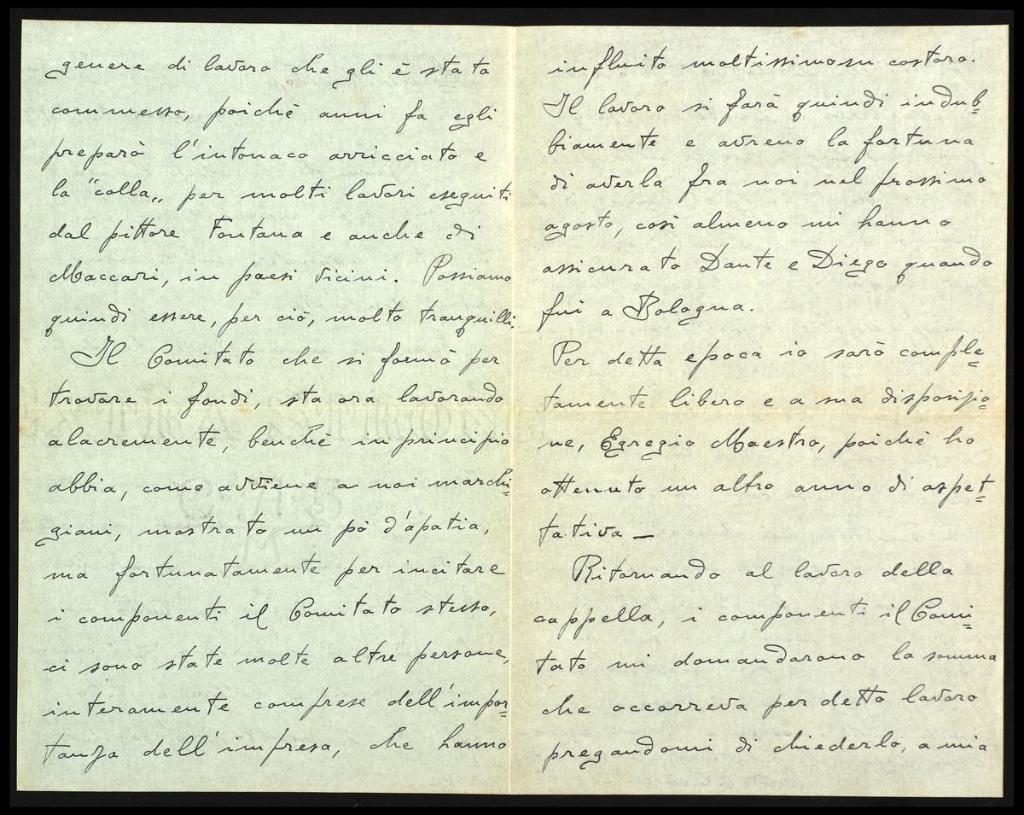 genere di lavoro che gli è stato
commesso, poichè anni fa egli
preparò l'intonaco arricciato e
la "colla„ per molti lavori eseguiti
dal pittore Fontana e anche di
Maccari, in paesi vicini. Possiamo
quindi essere, per ciò, molto tranquilli.
Il Comitato che si formò per
trovare i fondi, sta ora lavorando
alacremente, benchè in principio
abbia, come avviene a noi marchi=
giani, mostrato un pò d'apatia,
ma fortunatamente per incitare
i componenti il Comitato stesso,
ci sono state molte altre persone,
interamente comprese dell'impor=
tanza dell'impresa, che hanno
influito moltissimo su costoro.
Il lavoro si farà quindi indub=
biamente e avremo la fortuna
di averla fra noi nel prossimo
agosto, così almeno mi hanno
assicurato Dante e Diego quando
fui a Bologna.
Per detta epoca io sarò comple=
tamente libero e a sua disposizio=
ne, Egregio Maestro, poichè ho
ottenuto un altro anno di aspet=
tativa —
Ritornando al lavoro della
cappella, i componenti il Comi=
tato mi domandarono la somma
che occorreva per detto lavoro
pregandomi di chiederlo, a mia